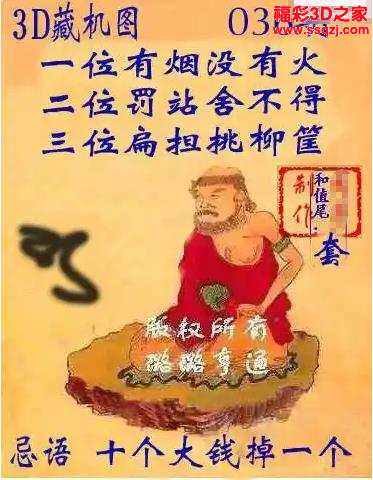 福彩3D之家
3D藏机图
www.55gzj.com
一位有烟没有火
二位罚站舍不得
三位扁担挑柳筐
制作
和值尾
套
版权所有
璐璐亨通
忌语 十个大钱掉一个